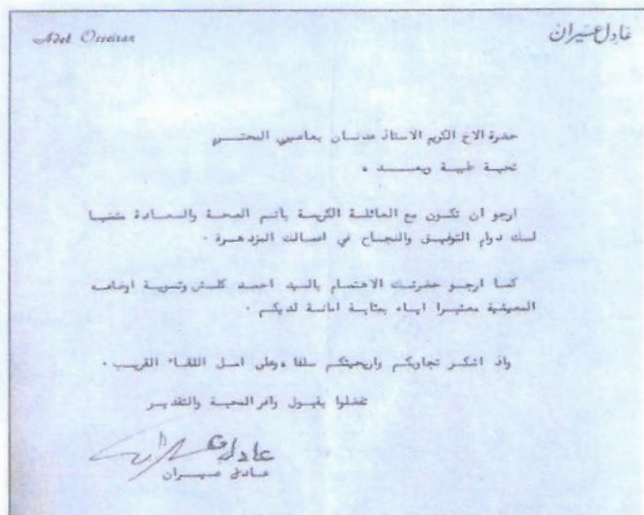 Adel Osseiran
عادل عسيران
حضرة الاخ الكريم الاستاذ عدنان المحترم
تحية طيبة وبعد ،
ارجو ان تكون مع العائلة الكريمة باتم الصحة والسعادة متمنيا
لك دوام التوفيق والنجاح في اعمالك المزدهرة .
كما ارجو حضرتك الاهتمام بالسيد احمد وتسوية اوضاعه
المعيشية معتبرا اياه بمثابة امانة لديكم .
واذ اشكر تجاوبكم واريحيتكم سلفا ،وعلى امل اللقاء القريب .
تفضلوا بقبول وافر المحبة والتقدير
عادل عسيران
عادل عسيران